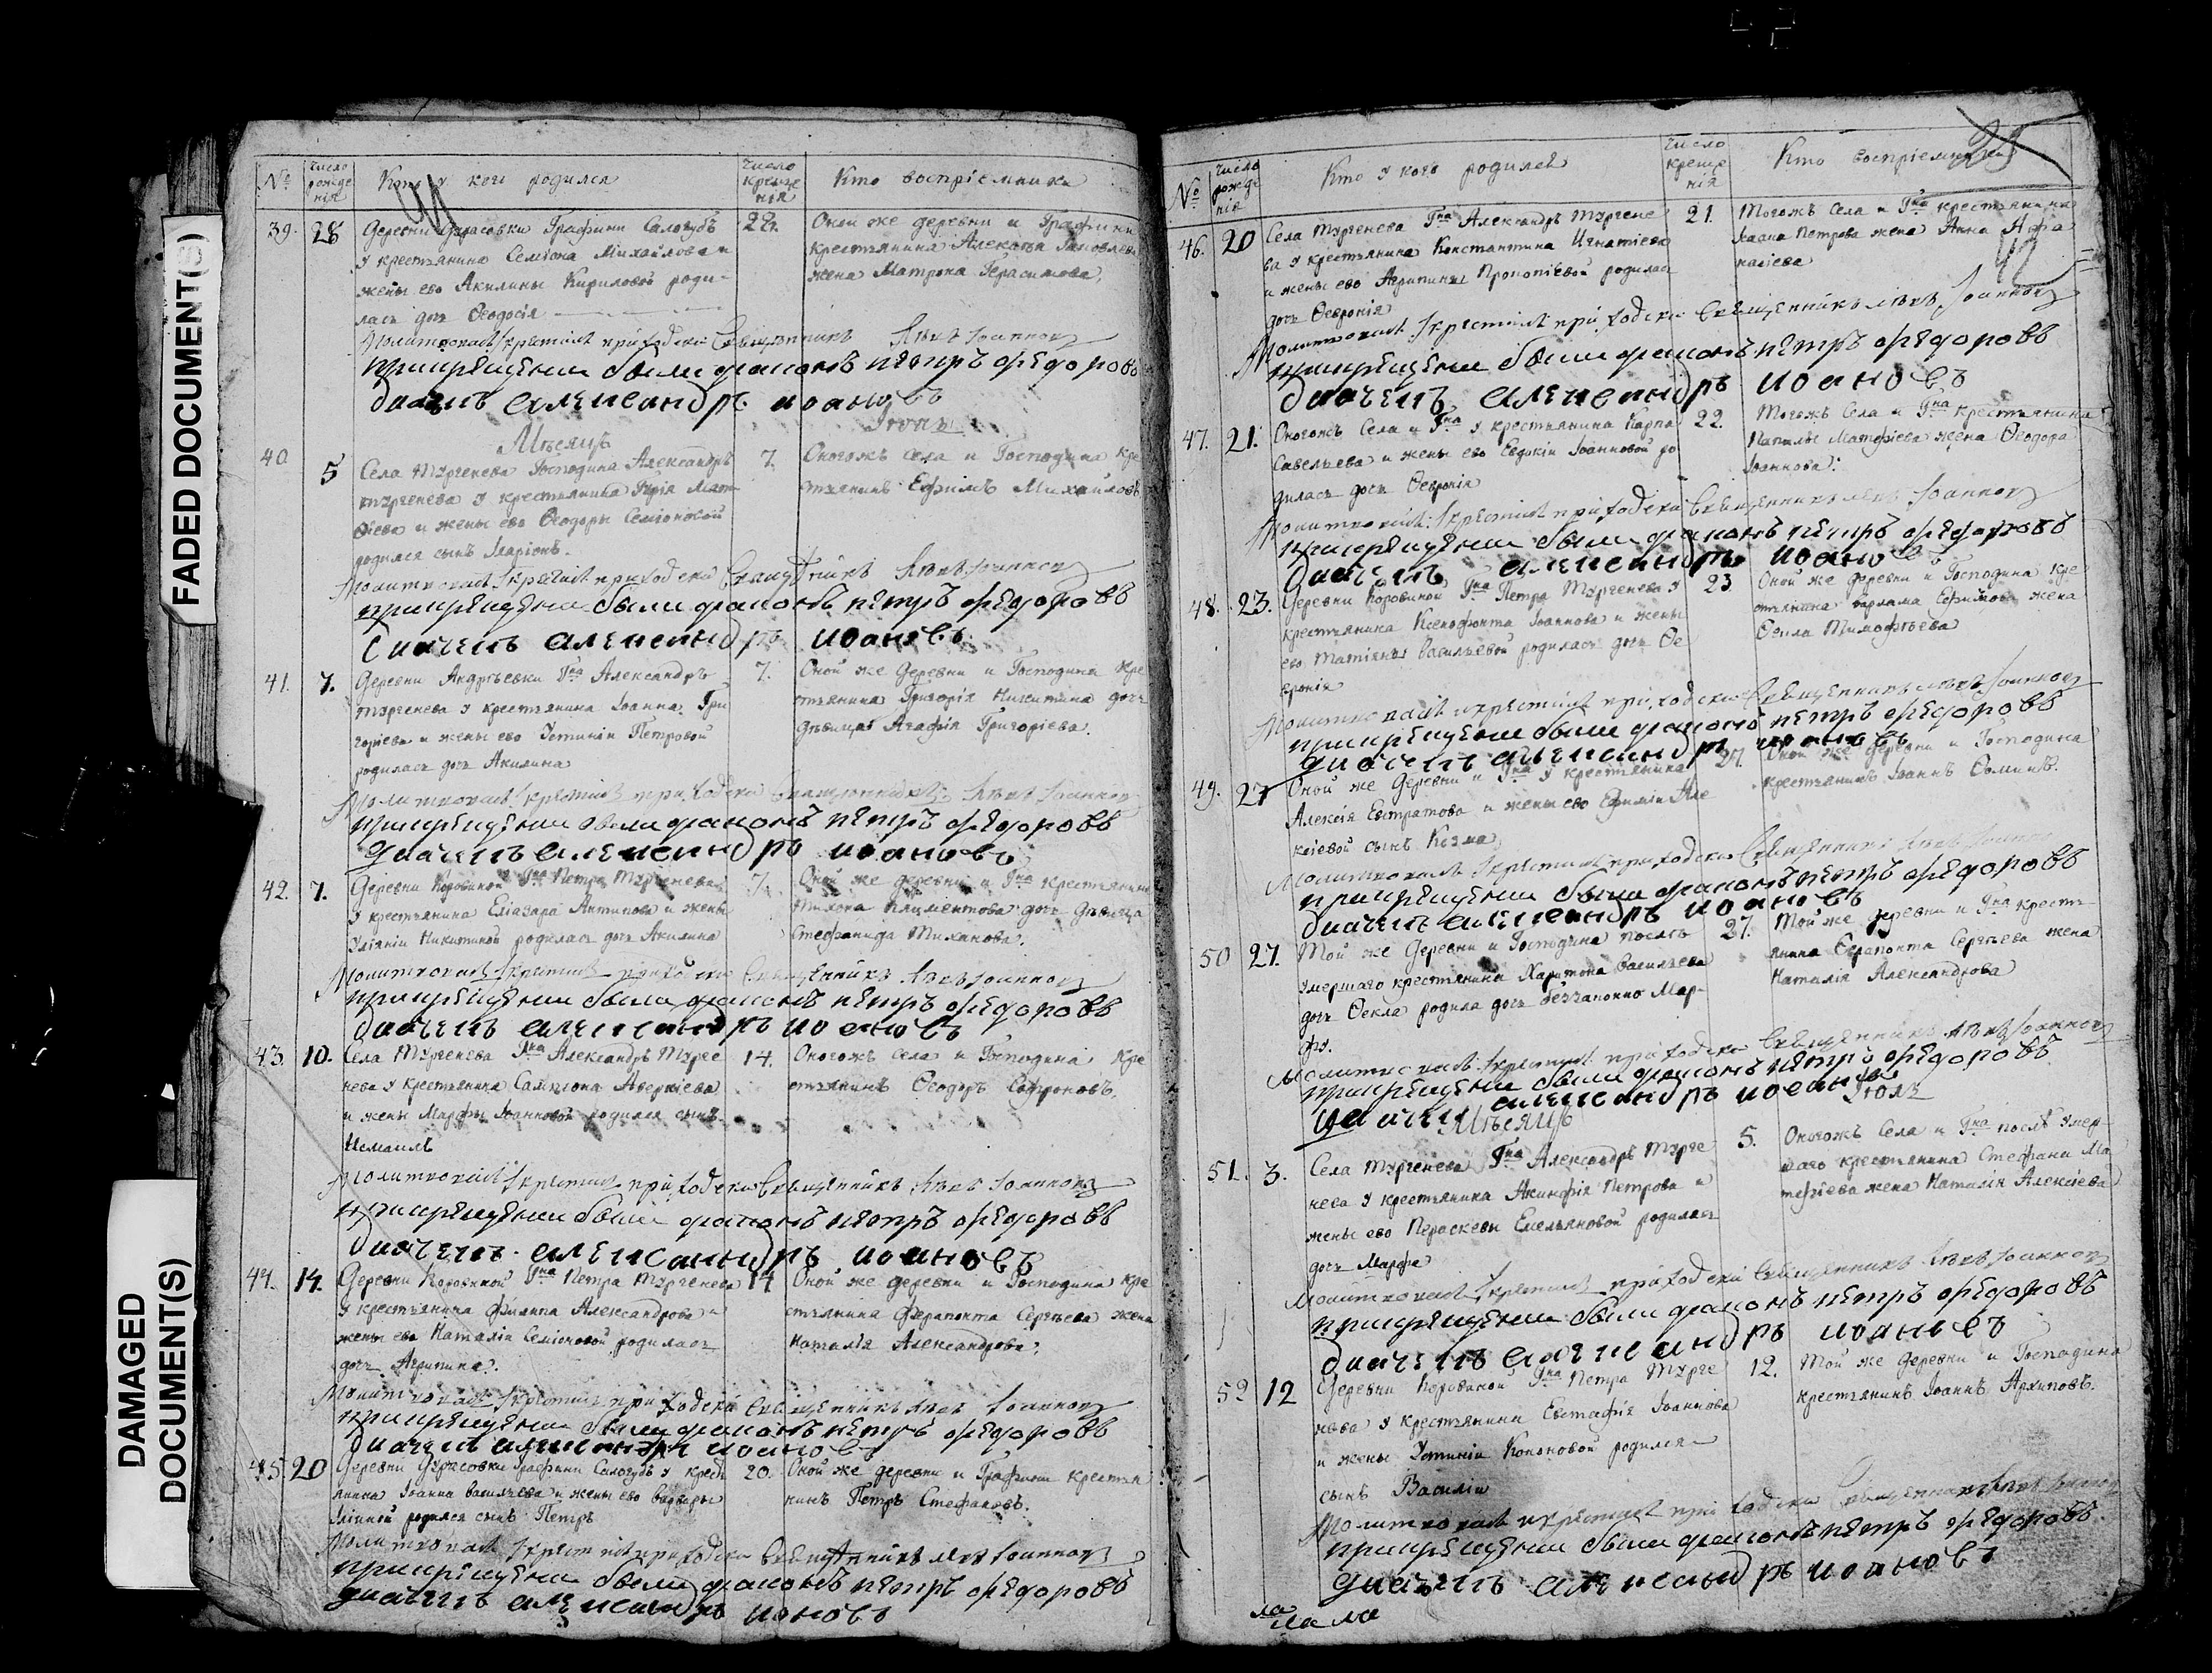 FADED DOCUMENT(S)
DAMAGED
DOCUMENT(S)
№
Число рожде нія
Кто у кого родился
Число креще нія
Кто воспріемники
39. 28
Деревни Графини Салогубъ
у крестьянина Семіона Михайлова и
жены ево Акилины Кириловой роди-
лась дочь Ѳеодосія
Оной же деревни и Графини
крестьянина Алексѣя Яковлева
жена Матрона Герасимова,
Молитвовалъ и крестилъ приходскій священникъ Іоанновъ
при крещении были диаконъ петръ федоровъ
диачекъ александръ иоановъ
Мѣсяцъ Іюнь
40. 5
Села Тургенева Господина Александръ
тургенева у крестьянина Гурія Мат-
ѳіева и жены ево Ѳеодоры Семіоновой
родился сынъ Иларіонъ.
7.
Оногожъ села и Господина кре
стьянинъ Ефимъ Михайловъ
Молитвовалъ и крестилъ приходскій священникъ Іоанновъ
при крещении были диаконъ петръ федоровъ
диачекъ александръ иоановъ
41. 7.
Деревни Андрѣевки Гна Александръ
тургенева у крестьянина Іоанна Гри
горіева и жены ево Устиніи Петровой
родилась дочь Акилина
7.
Оной же деревни и Господина кре
стьянина Григорія Никитина дочь
дѣвица Агафія Григоріева.
Молитвовалъ и крестилъ приходскій священникъ Іоанновъ
при крещении были диаконъ петръ федоровъ
диачекъ александръ иоановъ
42. 7.
Деревни Коровиной Гна Петра Тургенева
у крестьянина Еліазара Антипова и жены
Уліяніи Никитиной родилась дочь Акилина
7.
Оной же деревни и Гна крестьянина
Тихона Климентова дочь дѣвица
Стефанида Тихонова.
Молитвовалъ и крестилъ приходскій священникъ Іоанновъ
при крещении были диаконъ петръ федоровъ
диачекъ александръ иоановъ
43. 10.
Села Тургенева Гна Александръ Турге
нева у крестьянина Сампсона Аверкіева
и жены Марфы Іоанновой родился сынъ
Исмаилъ
14.
Оногожъ села и Господина кре
стьянинъ Ѳеодоръ Софроновъ.
Молитвовалъ и крестилъ приходскій священникъ Іоанновъ
при крещении были диаконъ петръ федоровъ
диачекъ александръ иоановъ
44. 14.
Деревни Коровиной Гна Петра Тургенева
у крестьянина Филипа Александрова и
жены ево Наталіи Семіоновой родилась
дочь Агрипина.
14
Оной же деревни и Господина кре
стьянина Ферапонта Сергѣева жена
Наталія Александрова.
Молитвовалъ и крестилъ приходскій священникъ Іоанновъ
при крещении были диаконъ петръ федоровъ
диачекъ александръ иоановъ
45. 20
Деревни Графини Салогубъ у крест
янина Іоанна Васильева и жены ево Варвары
Іліиной родился сынъ Петръ
20.
Оной же деревни и Графини крестья
нинъ Петръ Стефановъ.
Молитвовалъ и крестилъ приходскій священникъ Іоанновъ
при крещении были диаконъ петръ федоровъ
диачекъ александръ иоановъ
№
Число рожде нія
Кто у кого родился
Число креще нія
Кто воспріемники
46. 20
Села Тургенева Гна Александръ тургене
ва у крестьянина Константина Игнатіева
и жены ево Агрипины Прокопіевой родилась
дочь Ѳевронія
21.
Тогожъ села и Гна крестьянина
Іоанна Петрова жена Анна Афа
насіева
Молитвовалъ и крестилъ приходскій священникъ Іоанновъ
при крещении были диаконъ петръ федоровъ
диачекъ александръ иоановъ
47. 21.
Оногожъ села и Гна у крестьянина Карпа
Савельева и жены ево Евдокіи Іоанновой ро
дилась дочь Ѳевронія
22.
Тогожъ села и Гна крестьянина
Матфіева жена Ѳеодора
Іоаннова.
Молитвовалъ и крестилъ приходскій священникъ Іоанновъ
при крещении были диаконъ петръ федоровъ
диачекъ александръ иоановъ
48. 23.
Деревни Коровиной Гна Петра Тургенева у
крестьянина Ксенофонта Іоаннова и жены
ево Татіяны Васильевой родилась дочь Ѳе
вронія
23
Оной же деревни и Господина кре
стьянина Варлама Ефимова жена
Ѳекла Тимофѣева
Молитвовалъ и крестилъ приходскій священникъ Іоанновъ
при крещении были диаконъ петръ федоровъ
диачекъ александръ иоановъ
49. 27
Оной же деревни и Гна у крестьянина
Алексія Евстратова и жены ево Ефиміи Але
ксіевой сынъ Козма
27.
Оной же деревни и Господина
крестьянинъ Іоаннъ Ѳоминъ.
Молитвовалъ и крестилъ приходскій священникъ
при крещении были диаконъ петръ федоровъ
диачекъ александръ иоановъ
50 27.
Той же деревни и Господина послѣ
умершаго крестьянина Харитона Васильева
дочь Ѳекла родила дочь беззаконно Мар-
фу.
27.
Той же деревни и Гна крестъ
янина Ѳерапонта Сергѣева жена
Наталія Александрова
Молитвовалъ и крестилъ приходскій священникъ Іоанновъ
при крещении были диаконъ петръ федоровъ
диачекъ александръ иоановъ
Мѣсяцъ Іюль
51. 3.
Села Тургенева Гна Александръ Турге
нева у крестьянина Акинфія Петрова и
жены ево Пераскевы Емельяновой родилась
дочь Марфа
5.
Оногожъ села и Гна послѣ умер
шаго крестьянина Стефана Ма
тфѣева жена Наталія Алексіева
Молитвовалъ и крестилъ приходскій священникъ Іоанновъ
при крещении были диаконъ петръ федоровъ
диачекъ александръ иоановъ
52 12
Деревни Коровиной Гна Петра Турге
нева у крестьянина Евстафія Іоаннова
и жены Устиніи Кононовой родился
сынъ Василій
12.
Той же деревни и Господина
крестьянинъ Іоаннъ Архиповъ.
Молитвовалъ и крестилъ приходскій священникъ
при крещении были диаконъ петръ федоровъ
диачекъ александръ иоановъ